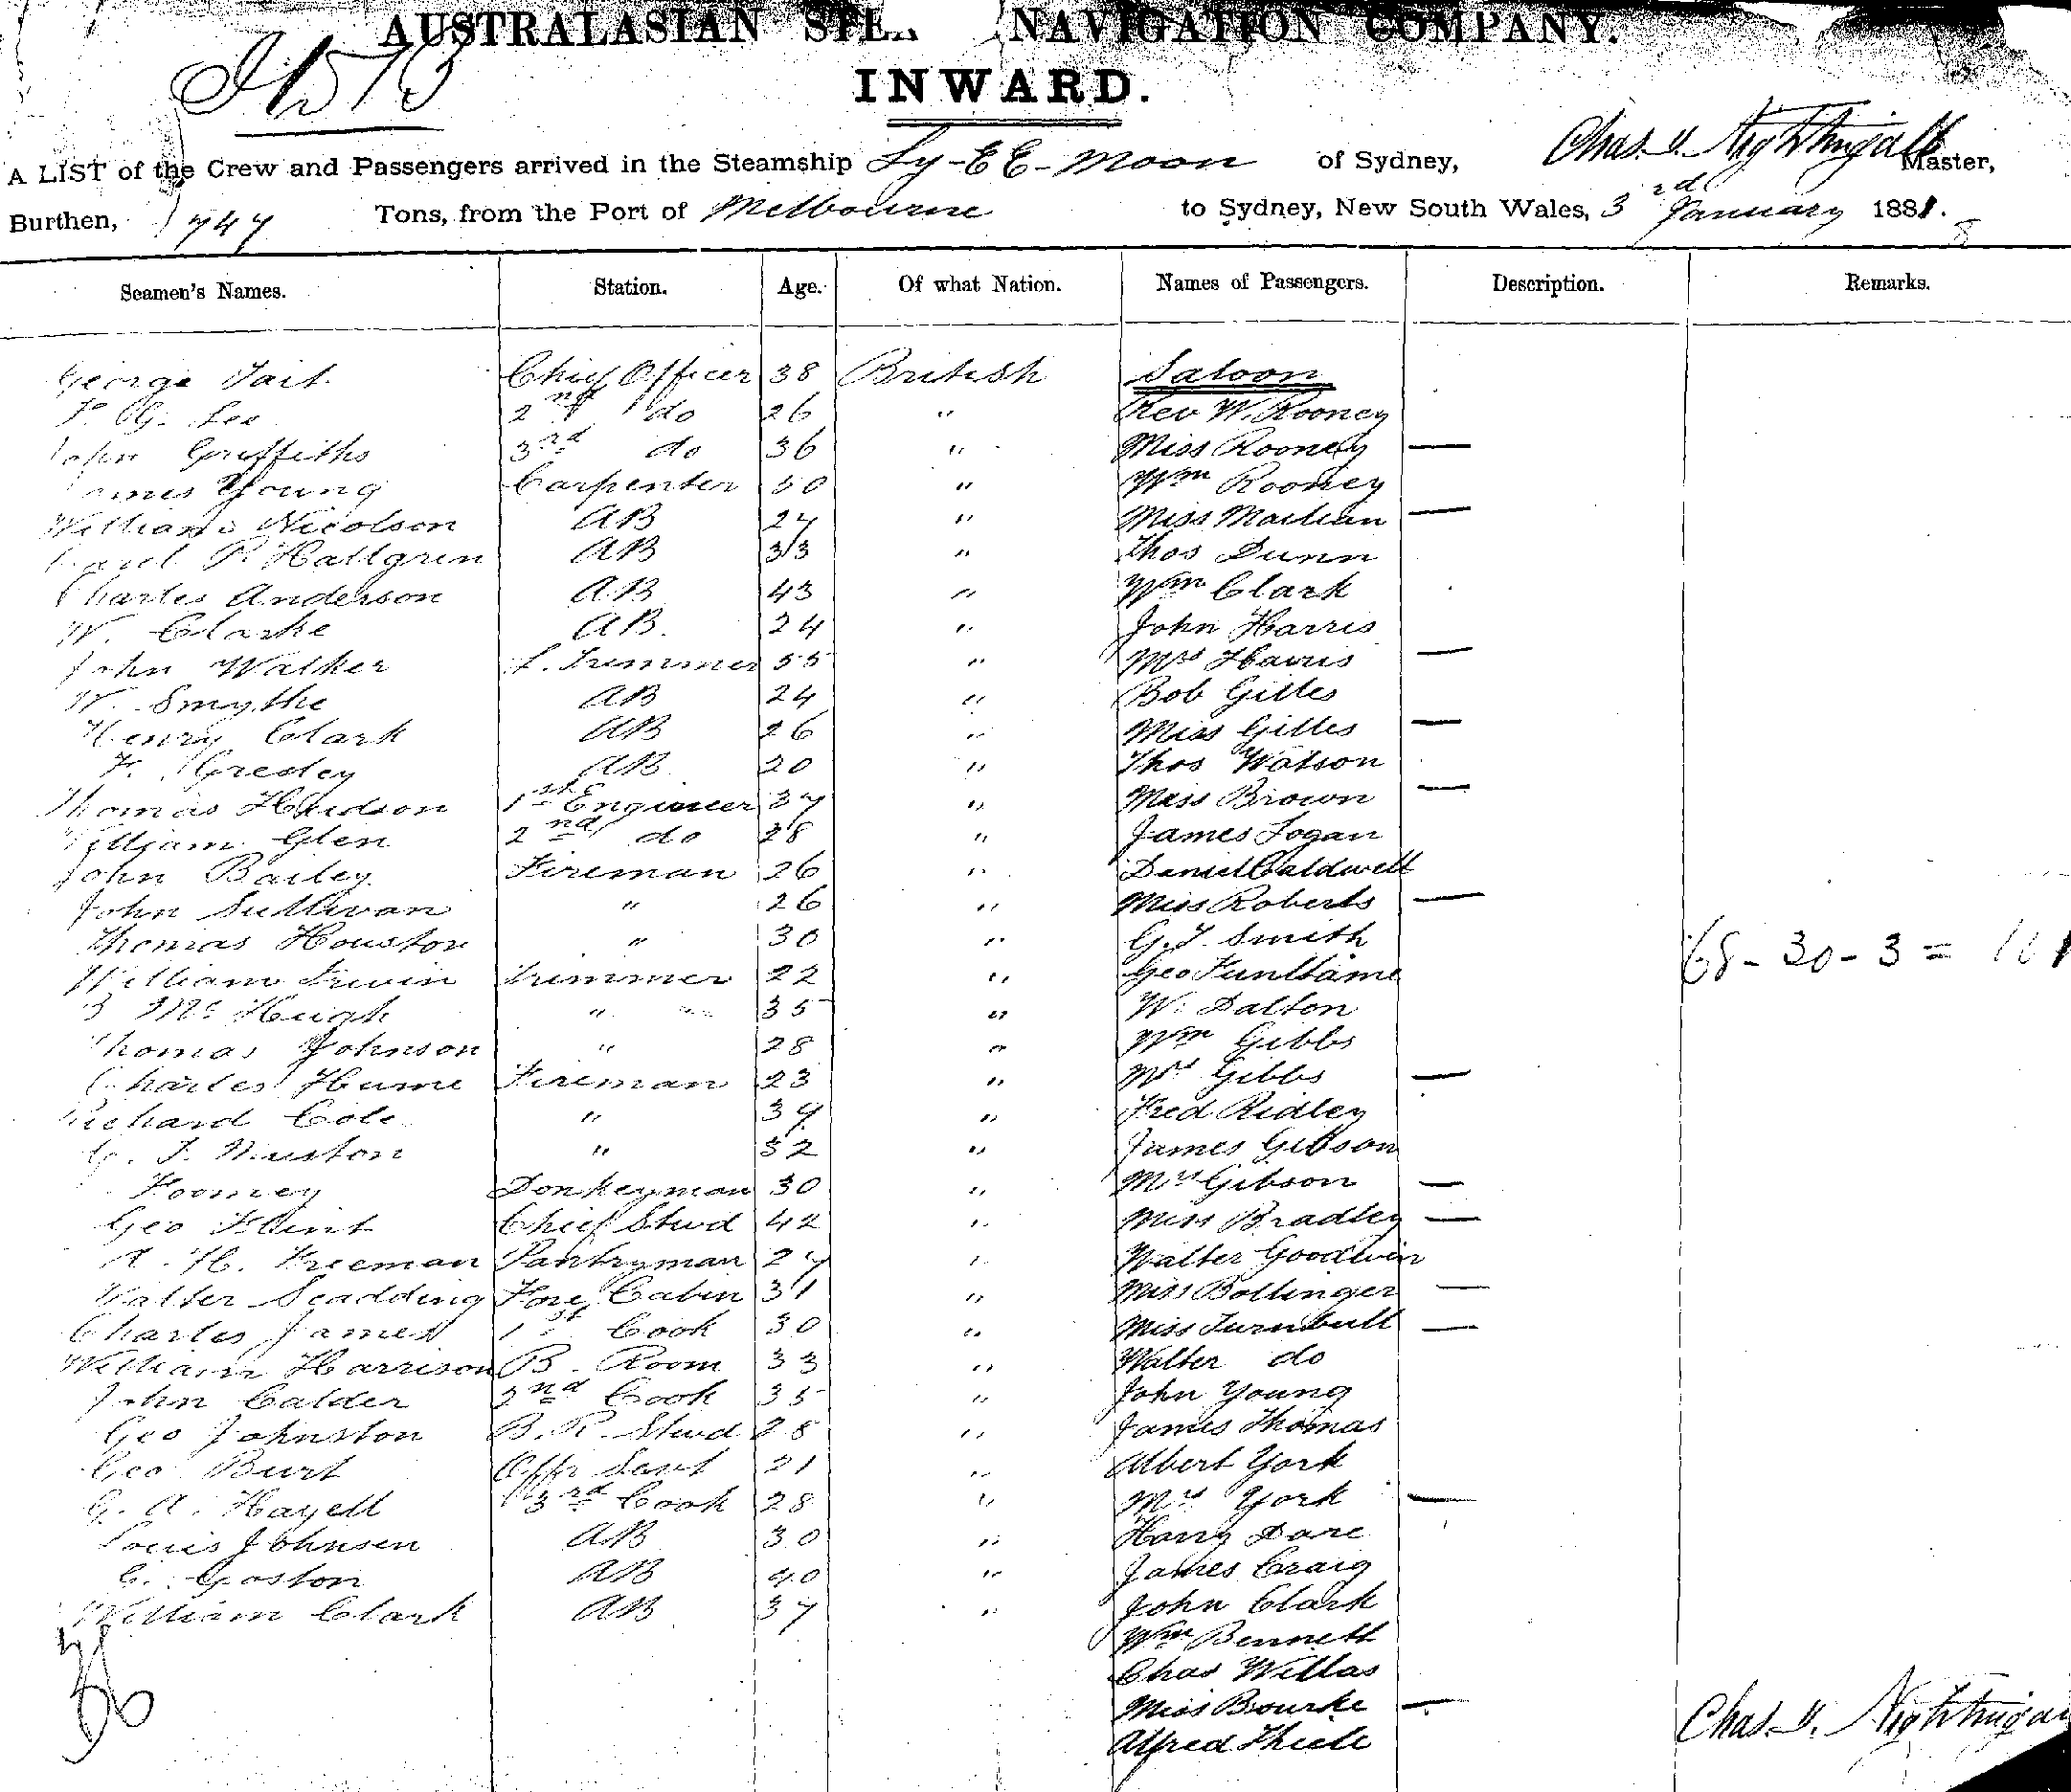 AUSTRALASIAN NAVIGATION COMPANY.
INWARD.
A LIST of the Crew and Passengers arrived in the Steamship Ly-EE-Moon of Sydney, Chas. Nightingale Master,
Burthen, 747 Tons, from the Port of Melbourne to Sydney, New South Wales, 3rd January 188
Seamen's Names. Station. Age. Of what Nation. Names of Passengers. Description. Remarks.
George Tait Chief Officer 38 British Saloon
Lee 2nd do 26 " Rev W. Rooney
John Griffiths 3rd do 36 " Miss Rooney —
James Young Carpenter 50 " Wm Rooney
William Nicolson AB 27 " Miss —
P. Hallgrin AB 33 " Thos Dunn
Charles Anderson AB 43 " Wm Clark
W. Clarke AB. 24 " John Harris
John Walker Trimmer 55 " Mrs Harris —
W. Smythe AB 24 " Bob Gilles
Henry Clark AB 26 " Miss Gilles —
Gresley AB 20 " Thos Watson
Thomas Hudson 1st Engineer 37 " Miss Brown —
William Glen 2nd do 28 " James Logan
John Bailey Fireman 26 " Daniel Caldwell
John Sullivan " 26 " Miss Roberts —
Thomas Houston " 30 " G. T. Smith
William Irwin Trimmer 22 " Geo
McHugh " 35 " W. Dalton
Thomas Johnson " 28 " Wm Gibbs
Charles Hume Fireman 23 " Mrs Gibbs —
Richard Cole " 39 " Fred Ridley
" 32 " James Gibson
Donkeyman 30 " Mrs Gibson —
Geo Flint Chief Stwd 42 " Miss Bradley —
H. Freeman Pantryman 27 " Walter Goodwin
Walter Scadding Fore Cabin 31 " Miss Bollinger —
Charles James 1st Cook 30 " Miss Turnbull —
William Harrison B. Room 33 " Walter do
John Calder 2nd Cook 35 " John Young
Geo Johnston B. R. Stwd 28 " James Thomas
Geo Burt Offr Savt 21 " Albert York
G. A. Hayell 3rd Cook 28 " Mrs York —
Louis Johnsen AB 30 " Harry Dare
Gaston AB 40 " James Craig
William Clark AB 37 " John Clark
Wm Bennett
Chas Willas
Miss Bourke —
Alfred Thiele
68-30-3 =
36
Chas.